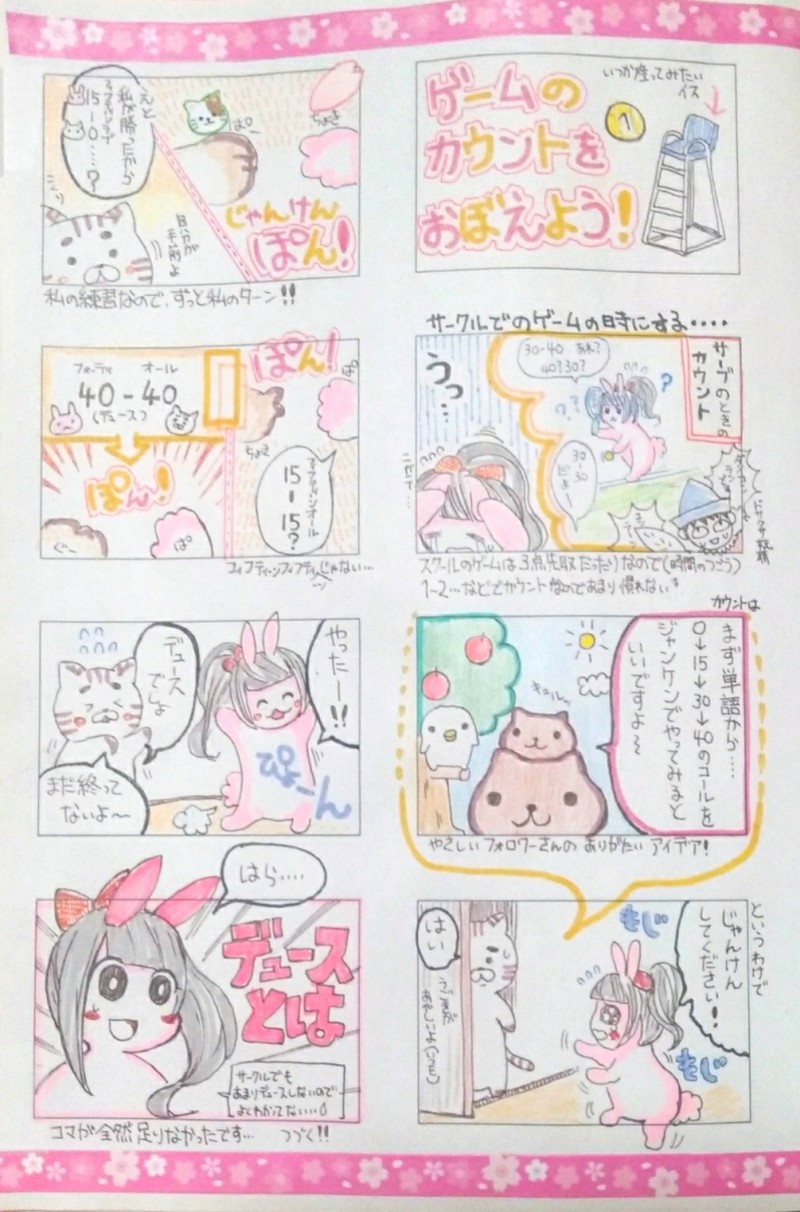 ゲームの
カウントを
おぼえよう!
いつか座ってみたい
イス
1
サークルでのゲームの時にする‥‥
サーブのときの
カウント
30-40 あれ?
40?30?
? ?
?
30-
30
だよ~
うっ…
スクールのゲームは3点先取だったりなので(時間のつごう)
1-2…などでカウントなのであまり慣れない
カウントは
まず単語から……
0→15→30→40のコールを
ジャンケンでやってみると
いいですよ~
キュルッ
やさしいフォロワーさんの ありがたい アイデア!
というわけで
じゃんけん
してください!
もじ
もじ
はい
うごきが
あやしいよ(いつも)
えと
私が勝ったから
15
-
0……?
ぱー
ちょき
じゃんけん
ぽん!
自分が
手前よ
私の練習なので、ずっと私のターン!!
フォーティ オール
40-40
(デュース)
ぽん!
ぱ
ちょき
15
-
15?
ぽん!
ぐー
ぱ
フィフティーンフィフティーンじゃない…
やったー!!
デュース
でしょ
まだ終って
ないよ~
ぴょーん
はら‥‥
デュース
とは
サークルでも
あまりデュースしないので
よくわかってない‥‥
コマが全然足りなかったです… つづく!!